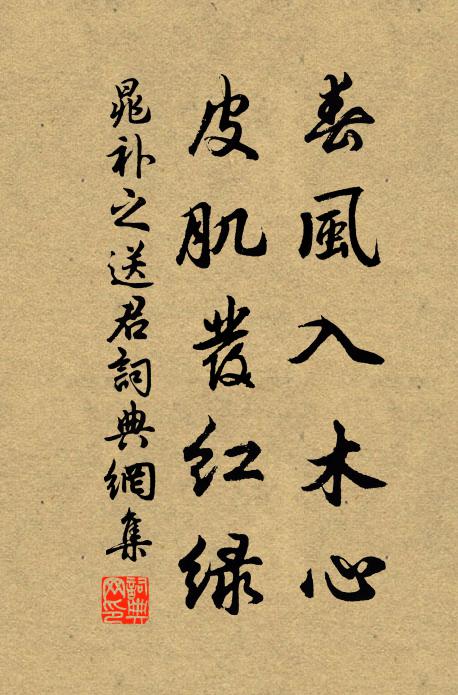 春風入木心
皮肌發红緑
晁补之送君詞典網集
詞典網印